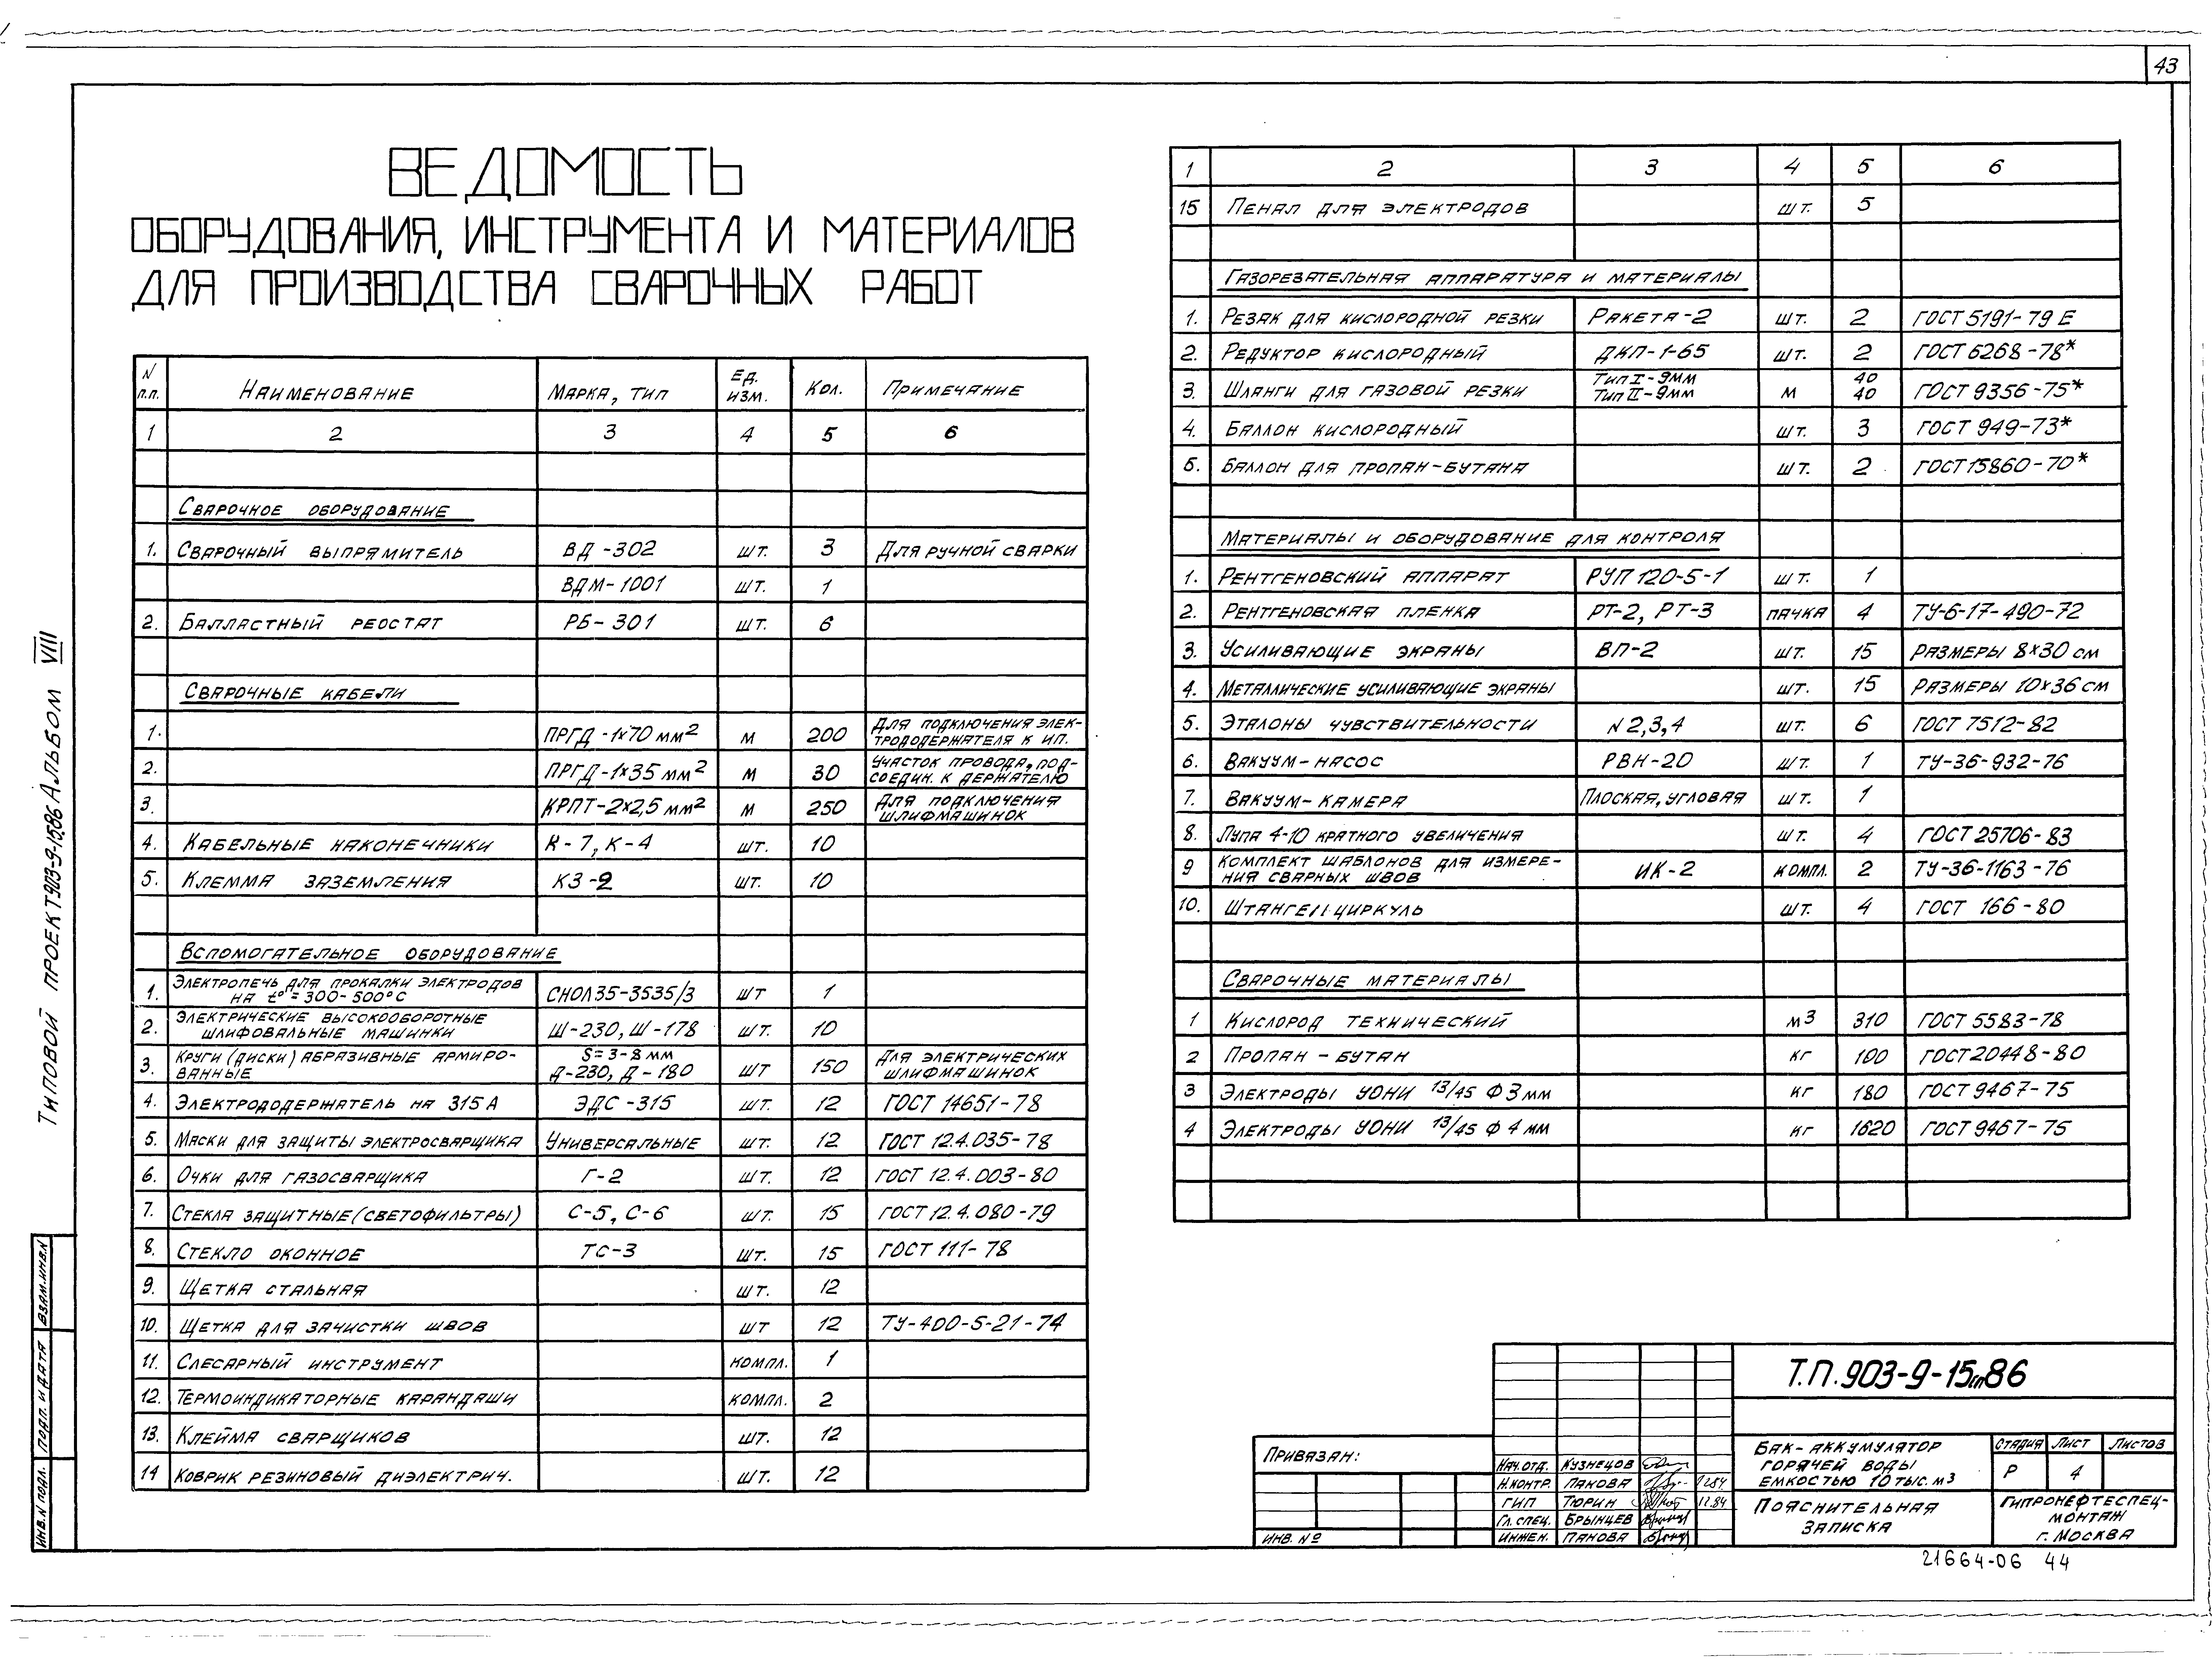 43
ВЕДОМОСТЬ
ОБОРУДОВАНИЯ, ИНСТРУМЕНТА И МАТЕРИАЛОВ
ДЛЯ ПРОИЗВОДСТВА СВАРОЧНЫХ РАБОТ
N п.п. Наименование Марка, тип Ед. изм. Кол. Примечание
1 2 3 4 5 6
Сварочное оборудование
1. Сварочный выпрямитель ВД-302 шт. 3 Для ручной сварки
ВДМ-1001 шт. 1
2. Балластный реостат РБ-301 шт. 6
Сварочные кабели
1. ПРГД-1х70 мм2 м 200 Для подключения элек-
трододержателя к ИП.
2. ПРГД-1х35 мм2 м 30 Участок провода, под-
соедин. к держателю
3. КРПТ-2х2,5 мм2 м 250 Для подключения
шлифмашинок
4. Кабельные наконечники К-7, К-4 шт. 10
5. Клемма заземления КЗ-2 шт. 10
Вспомогательное оборудование
1. Электропечь для прокалки электродов
на t° = 300-500°С СНОЛ 35-3535/3 шт 1
2. Электрические высокооборотные
шлифовальные машинки Ш-230, Ш-178 шт. 10
3. Круги (диски) абразивные армиро-
ванные S=3-8 мм
Д-230, Д-180 шт 150 Для электрических
шлифмашинок
4. Электрододержатель на 315 А ЭДС-315 шт. 12 ГОСТ 14651-78
5. Маски для защиты электросварщика Универсальные шт. 12 ГОСТ 12.4.035-78
6. Очки для газосварщика Г-2 шт. 12 ГОСТ 12.4.003-80
7. Стекла защитные (светофильтры) С-5, С-6 шт. 15 ГОСТ 12.4.080-79
8. Стекло оконное ТС-3 шт. 15 ГОСТ 111-78
9. Щетка стальная шт. 12
10. Щетка для зачистки швов шт 12 ТУ-400-5-21-74
11. Слесарный инструмент компл. 1
12. Термоиндикаторные карандаши компл. 2
13. Клейма сварщиков шт. 12
14 Коврик резиновый диэлектрич. шт. 12
1 2 3 4 5 6
15 Пенал для электродов шт. 5
Газорезательная аппаратура и материалы
1. Резак для кислородной резки Ракета-2 шт. 2 ГОСТ 5191-79 Е
2. Редуктор кислородный ДКП-1-65 шт. 2 ГОСТ 6268-78*
3. Шланги для газовой резки Тип I - 9мм
Тип II - 9мм м 40
40 ГОСТ 9356-75*
4. Баллон кислородный шт. 3 ГОСТ 949-73*
5. Баллон для пропан-бутана шт. 2 ГОСТ 15860-70*
Материалы и оборудование для контроля
1. Рентгеновский аппарат РУП 120-5-1 шт. 1
2. Рентгеновская пленка РТ-2, РТ-3 пачка 4 ТУ-6-17-490-72
3. Усиливающие экраны ВП-2 шт. 15 размеры 8х30 см
4. Металлические усиливающие экраны шт. 15 размеры 10х36 см
5. Эталоны чувствительности N 2,3,4 шт. 6 ГОСТ 7512-82
6. Вакуум-насос РВН-20 шт. 1 ТУ-36-932-76
7. Вакуум-камера Плоская, угловая шт. 1
8. Лупа 4-10 кратного увеличения шт. 4 ГОСТ 25706-83
9 Комплект шаблонов для измере-
ния сварных швов ИК-2 компл. 2 ТУ-36-1163-76
10. Штангенциркуль шт. 4 ГОСТ 166-80
Сварочные материалы
1 Кислород технический м3 310 ГОСТ 5583-78
2 Пропан-бутан кг 100 ГОСТ 20448-80
3 Электроды УОНИ 13/45 Ф 3 мм кг 180 ГОСТ 9467-75
4 Электроды УОНИ 13/45 Ф 4 мм кг 1620 ГОСТ 9467-75
Типовой проект 903-9-15сп.86 Альбом VIII
Взам.инв.N
Подп. и дата
Инв.N подл.
Привязан:
Инв. №
Нач.отд. Кузнецов
Н.контр. Панова 12.84
ГИП Тюрин 12.84
Гл. спец. Брынцев
Инжен. Панова
Т.П. 903-9-15сп86
Бак-аккумулятор
горячей воды
емкостью 10 тыс. м3
Стадия Лист Листов
Р 4
Пояснительная
записка
Гипронефтеспец-
монтаж
г. Москва
21664-06 44